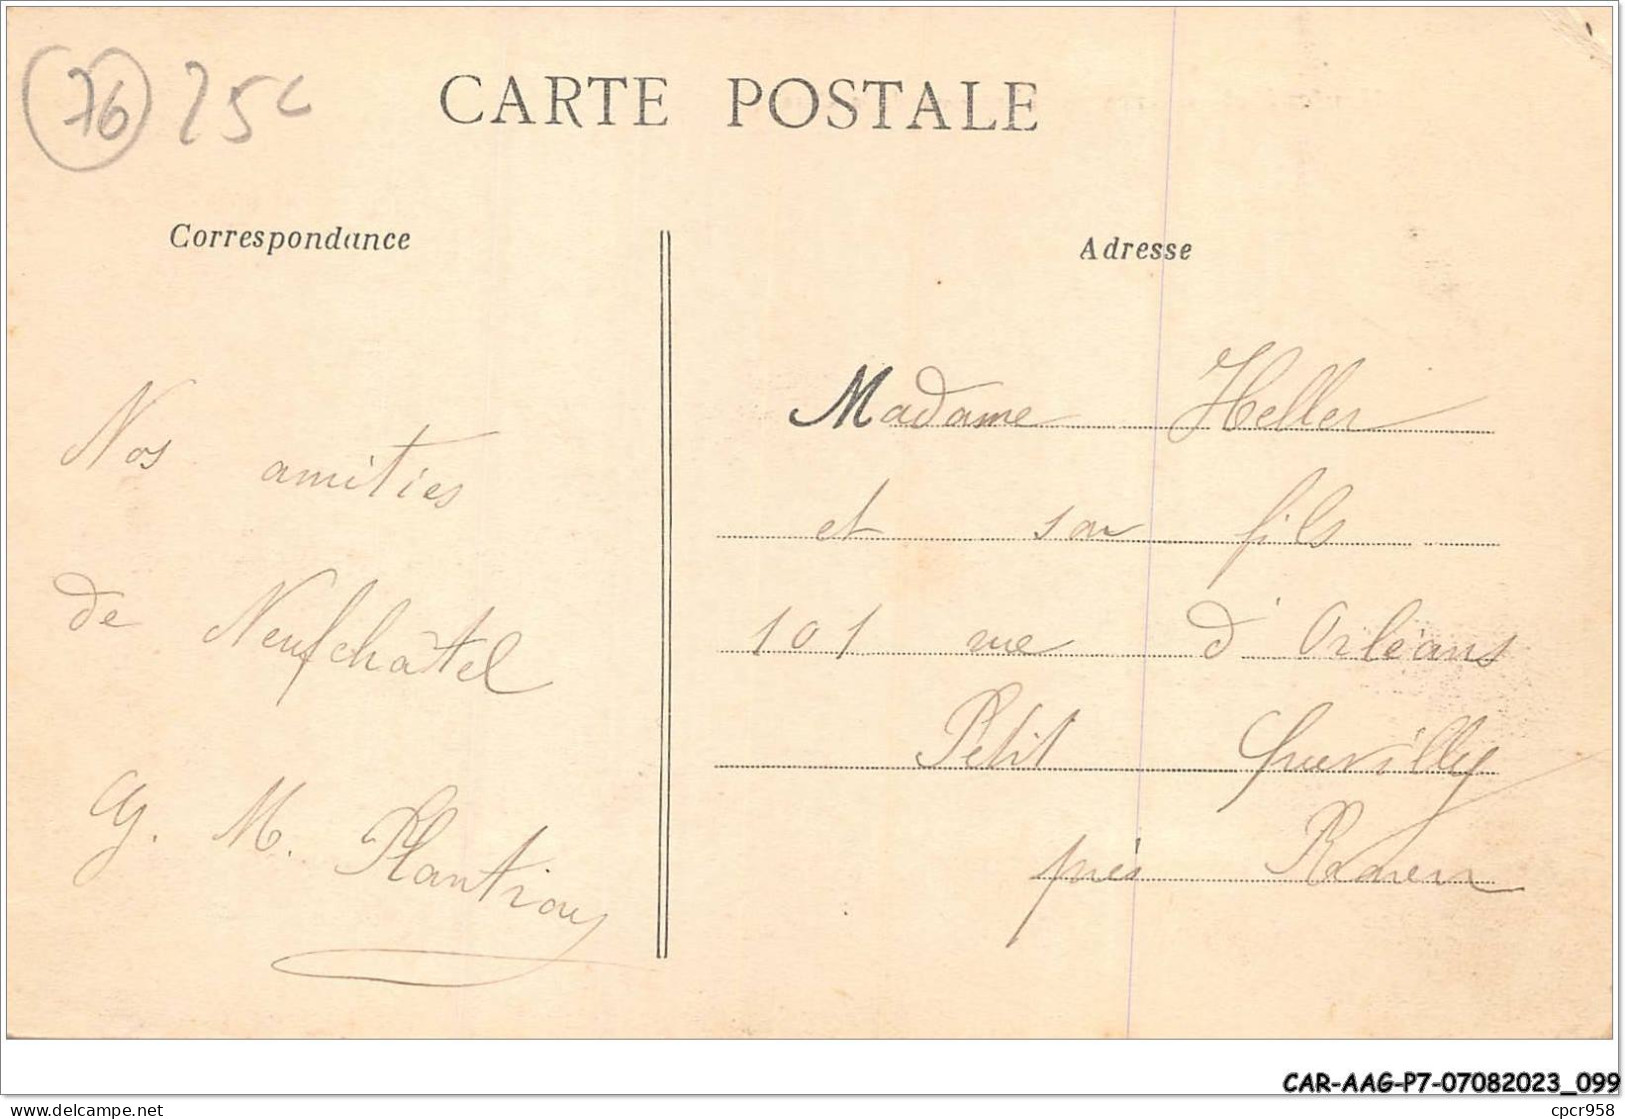 76 25c
CARTE POSTALE
Correspondance
Adresse
Nos amitiés
de Neufchâtel
M. Plantrou
Madame Heller
et son fils
101 rue d'Orléans
Petit Quevilly
près Rouen
CAR-AAG-P7-07082023_099
delcampe.net
cpcr958